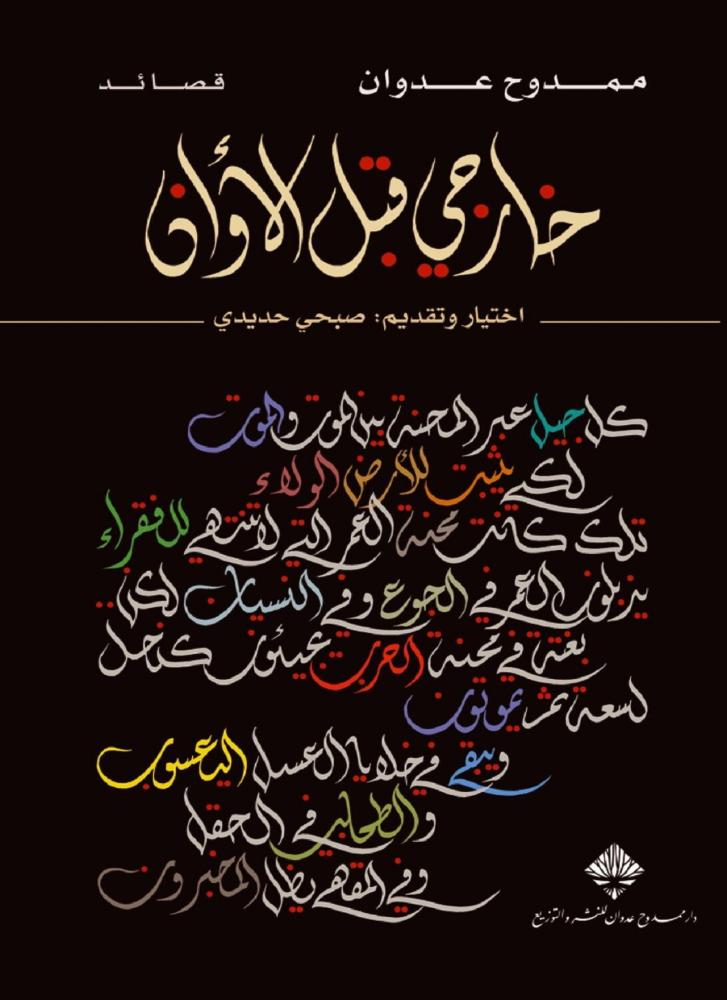 ممدوح عدوان قصائد
خارجي قبل الأوان
اختيار وتقديم: صبحي حديدي
كل جيل عبر المحنة بين الموت والموت
لكي يثبت للأرض الولاء
تلك كانت محنة العمر التي لا تنتهي للفقراء
يذبلون العمر في الجوع وفي النسيان لكن..
بغتة في محنة الحرب يجيئون كنحل
لسعة ثم يموتون
ويبقى في خلايا العسل اليعسوب
والطحلب في الحقل
وفي المقهى يظل المخبرون
دار ممدوح عدوان للنشر والتوزيع